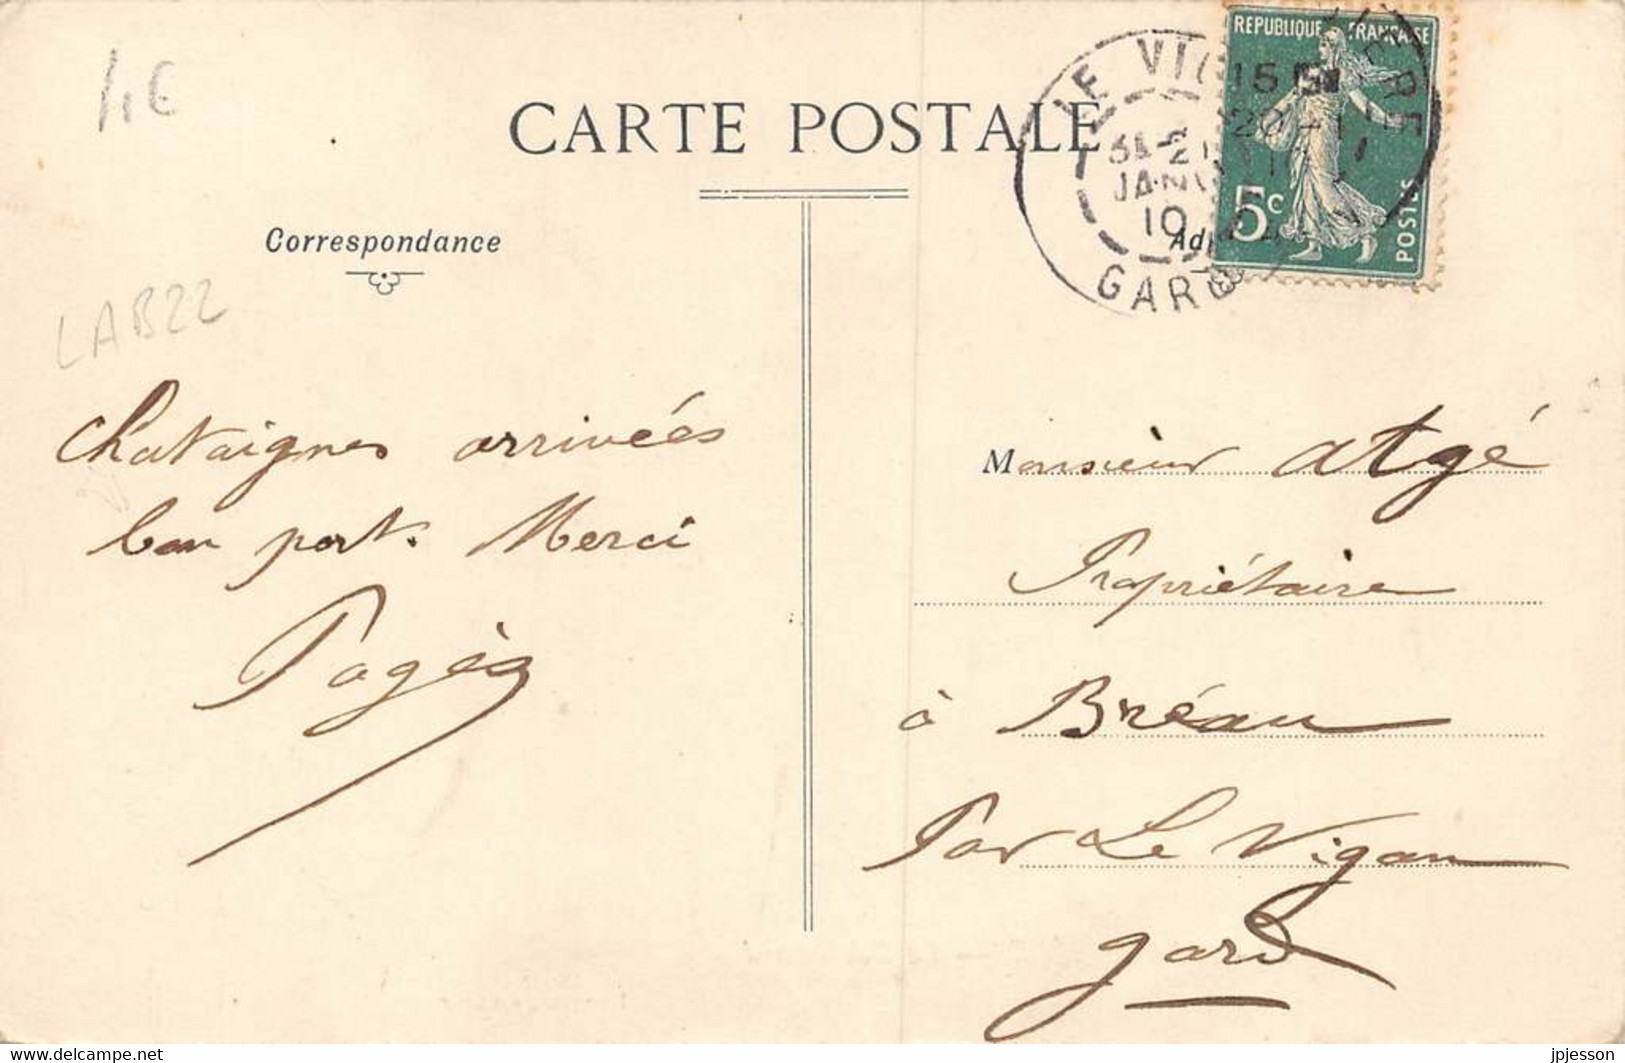 4€
CARTE POSTALE
REPUBLIQUE FRANÇAISE
5c
POSTES
LE VIG
JANV
10
GARD
Correspondance
LAB22
Chataignes arrivées
bon port. Merci
Pagès
Monsieur Atgé
Propriétaire
à Bréau
Par Le Vigan
Gard
Delcampe.net
jpjesson